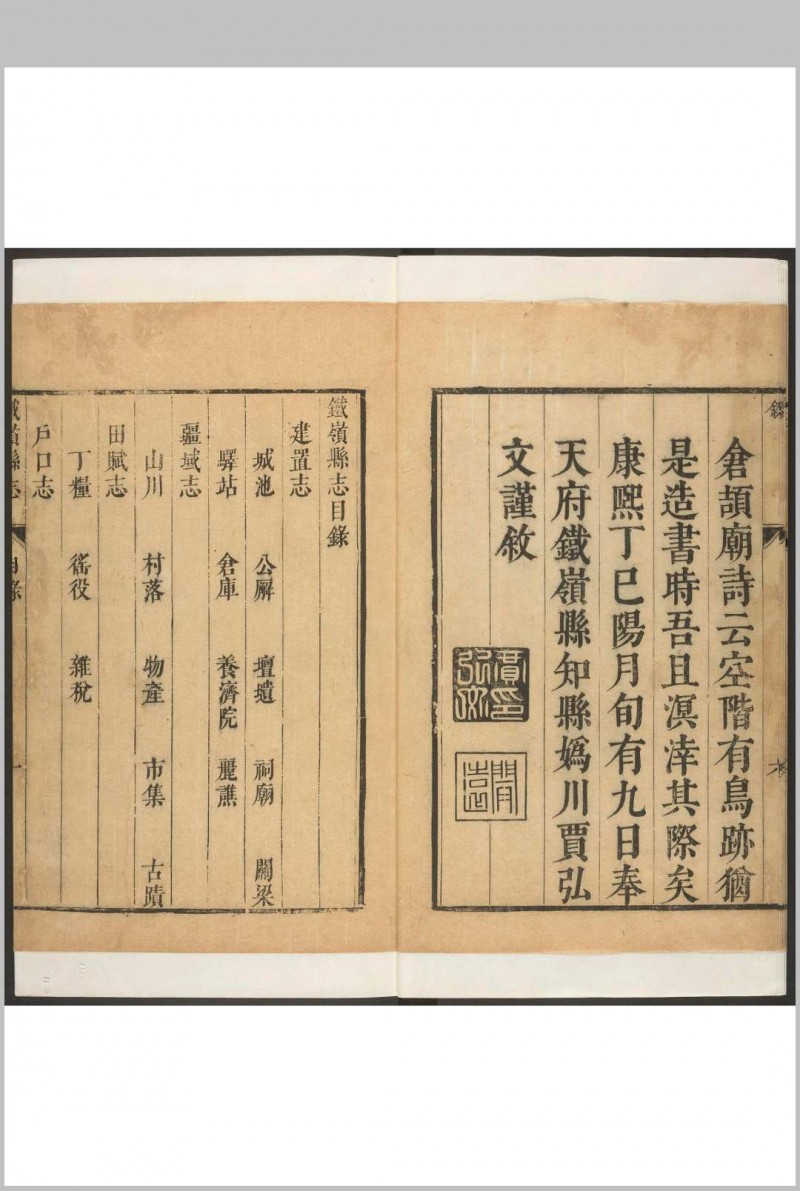 倉頡廟詩云空階有鳥跡猶
是造書時吾且溟涬其際矣
康熙丁巳陽月旬有九日奉
天府鐵嶺縣知縣媯川賈弘
文謹敘
鐵嶺縣志目錄
建置志
城池 公廨 壇壝 祠廟 關梁
驛站 倉庫 養濟院 麗譙
疆域志
山川 村落 物產 市集 古蹟
田賦志
丁糧 徭役 雜稅
戶口志
鐵嶺縣志 目錄 一